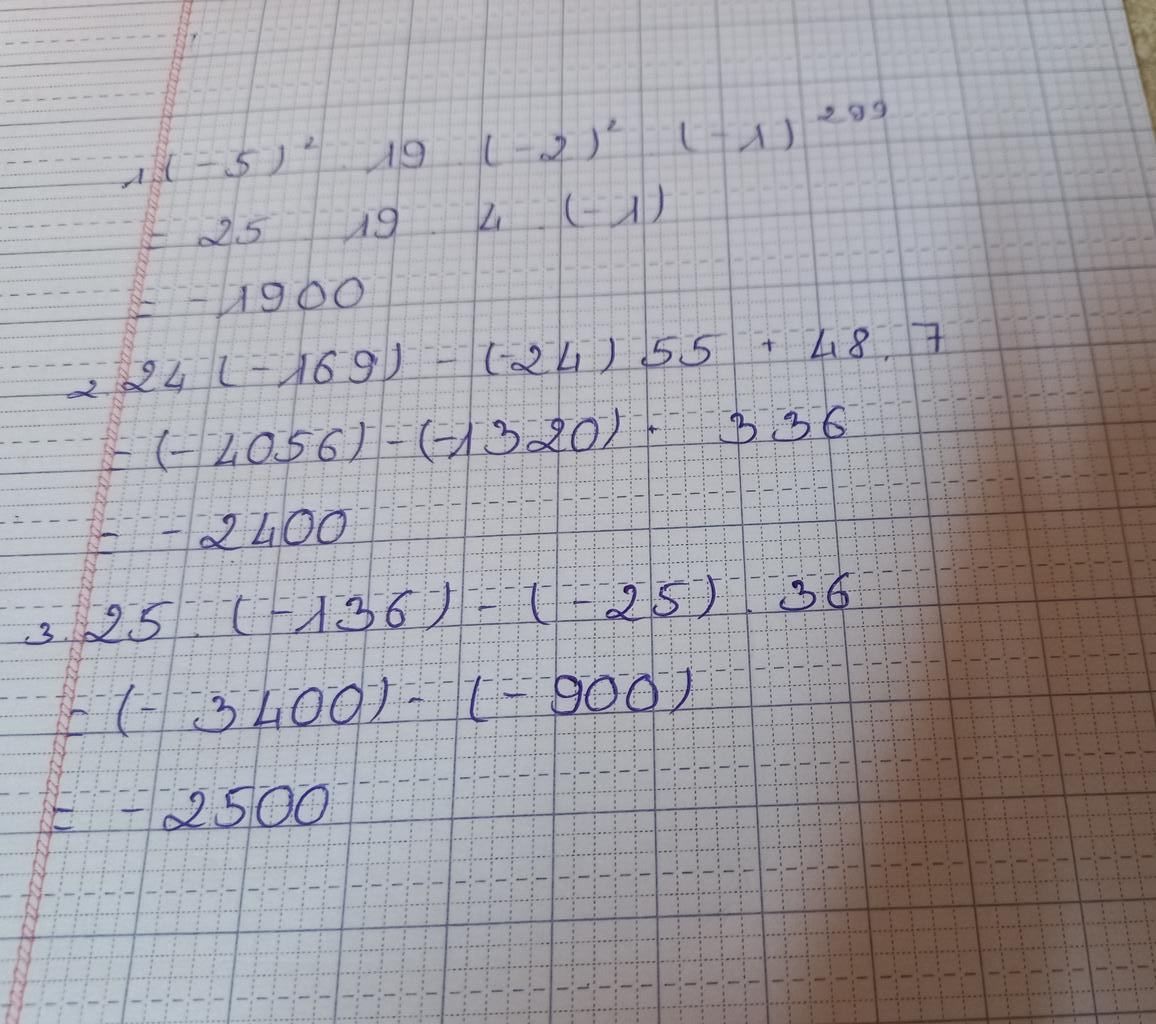 1 (-5)² . 19 (-2)² (-1)²⁹⁹
= 25 19 . 4 . (-1)
= -1900
2 24 (-169) - (-24) 55 + 48 . 7
= (-4056) - (-1320) + 336
= -2400
3. 25 . (-136) - (-25) . 36
= (-3400) - (-900)
= -2500